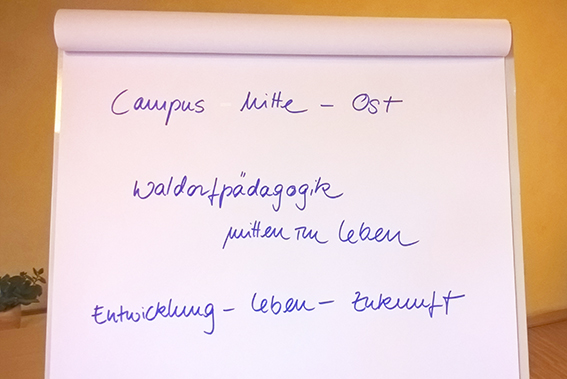 Campus Mitte - Ost
Waldorfpädagogik
mitten im Leben
Entwicklung - Leben - Zukunft